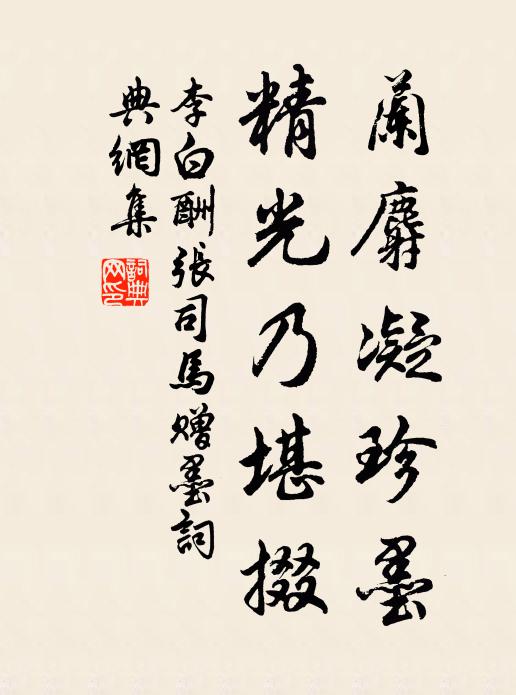 蘭麝凝珍墨
精光乃堪掇
李白酬張司馬贈墨詞
典網集
詞典網印